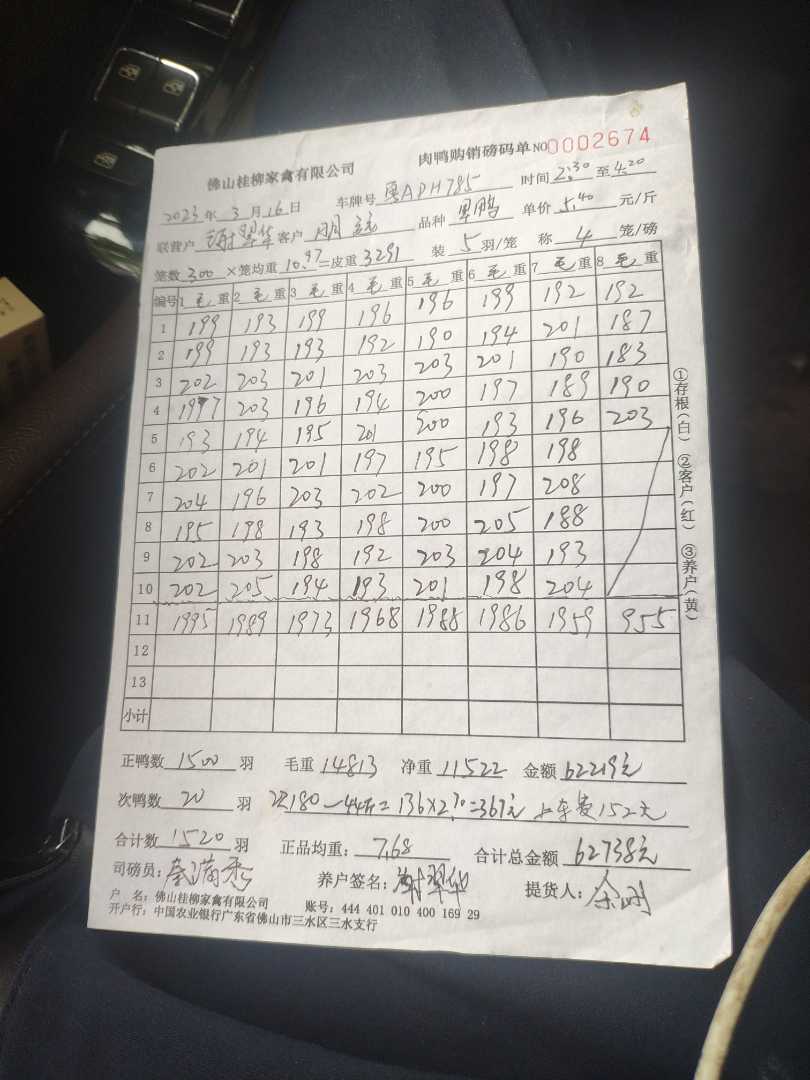 佛山桂柳家禽有限公司 肉鸭购销磅码单 NO 0002674
2023年3月16日 车牌号 粤APH785 时间 2:30 至 4:20
联营户 谢翠华 客户 明 品种 单价 5.40 元/斤
笼数 300 ×笼均重 10.97 =皮重 3291 装 5 羽/笼 称 4 笼/磅
编号 1 毛 重 2 毛 重 3 毛 重 4 毛 重 5 毛 重 6 毛 重 7 毛 重 8 毛 重
1 199 193 199 196 196 199 192 192
2 199 193 193 192 190 194 201 187
3 202 203 201 203 203 201 190 183
4 1997 203 196 194 200 197 189 190
5 193 194 195 201 200 193 196 203
6 202 201 201 197 195 198 198
7 204 196 203 202 200 197 208
8 195 198 193 198 200 205 188
9 202 203 198 192 203 204 193
10 202 205 194 193 201 198 204
11 1995 1989 1973 1968 1988 1986 1959 955
12
13
小计
①存根(白) ②客户(红) ③养户(黄)
正鸭数 1500 羽 毛重 14813 净重 11522 金额 62219元
次鸭数 20 羽 次180-44斤=136×2.70=367元 上车费152元
合计数 1520 羽 正品均重: 7.68 合计总金额 62738元
司磅员: 养户签名: 谢翠华 提货人: 余
户 名: 佛山桂柳家禽有限公司 账号: 444 401 010 400 169 29
开户行: 中国农业银行广东省佛山市三水区三水支行